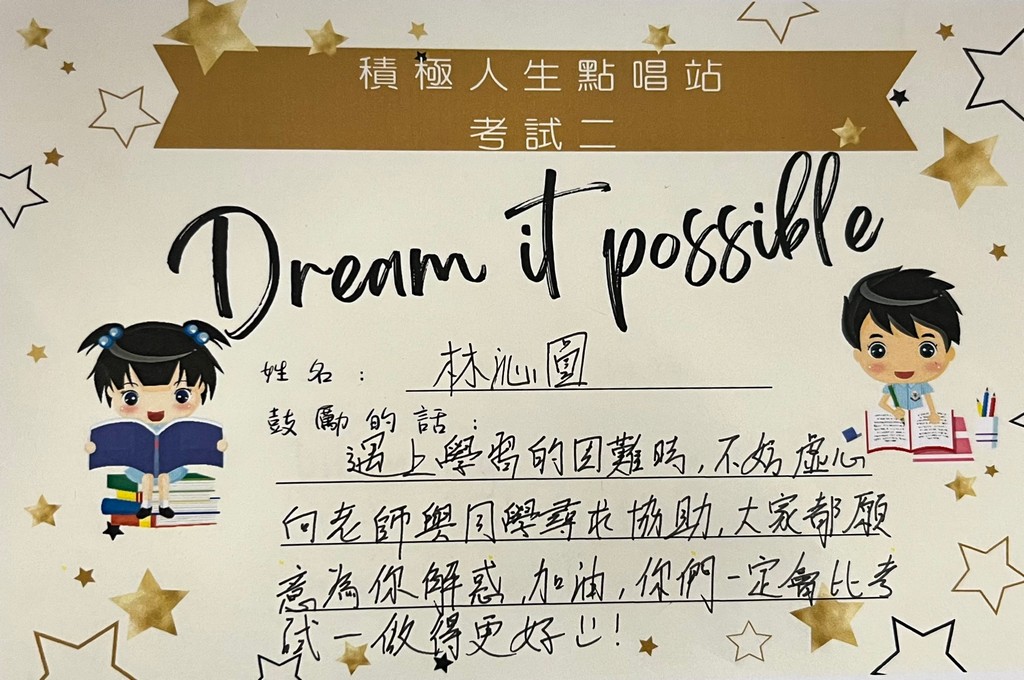 積極人生點唱站
考試二
Dream it possible
姓名：林沁圓
鼓勵的話：
遇上學習的困難時，不妨虛心
向老師與同學尋求協助，大家都願
意為你解惑，加油，你們一定會比考
試一做得更好！